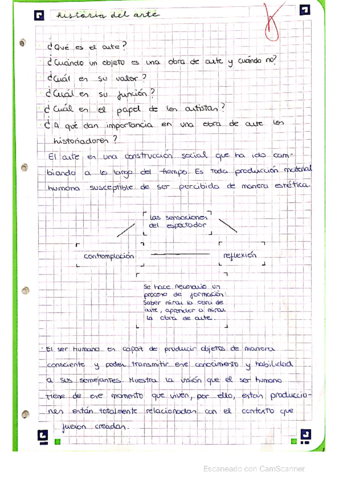 historia del arte
¿Qué es el arte?
¿Cuándo un objeto es una obra de arte y cuándo no?
¿Cuál es su valor?
¿Cuál es su función?
¿Cuál es el papel de los artistas?
¿A qué dan importancia en una obra de arte los
historiadores?
El arte es una construcción social que ha ido cam-
biando a lo largo del tiempo. Es toda producción material
humana susceptible de ser percibida de manera estética.
las sensaciones
del espectador
contemplación
reflexión
Se hace necesario un
proceso de formación:
Saber mirar la obra de
arte, aprender a mirar
la obra de arte.
El ser humano es capaz de producir objetos de manera
consciente y poder transmitir ese conocimiento y habilidad
a sus semejantes. Muestra la visión que el ser humano
tiene de ese momento que viven, por ello, estas produccio-
nes están totalmente relacionadas con el contexto que
fueron creadas.
Escaneado con CamScanner